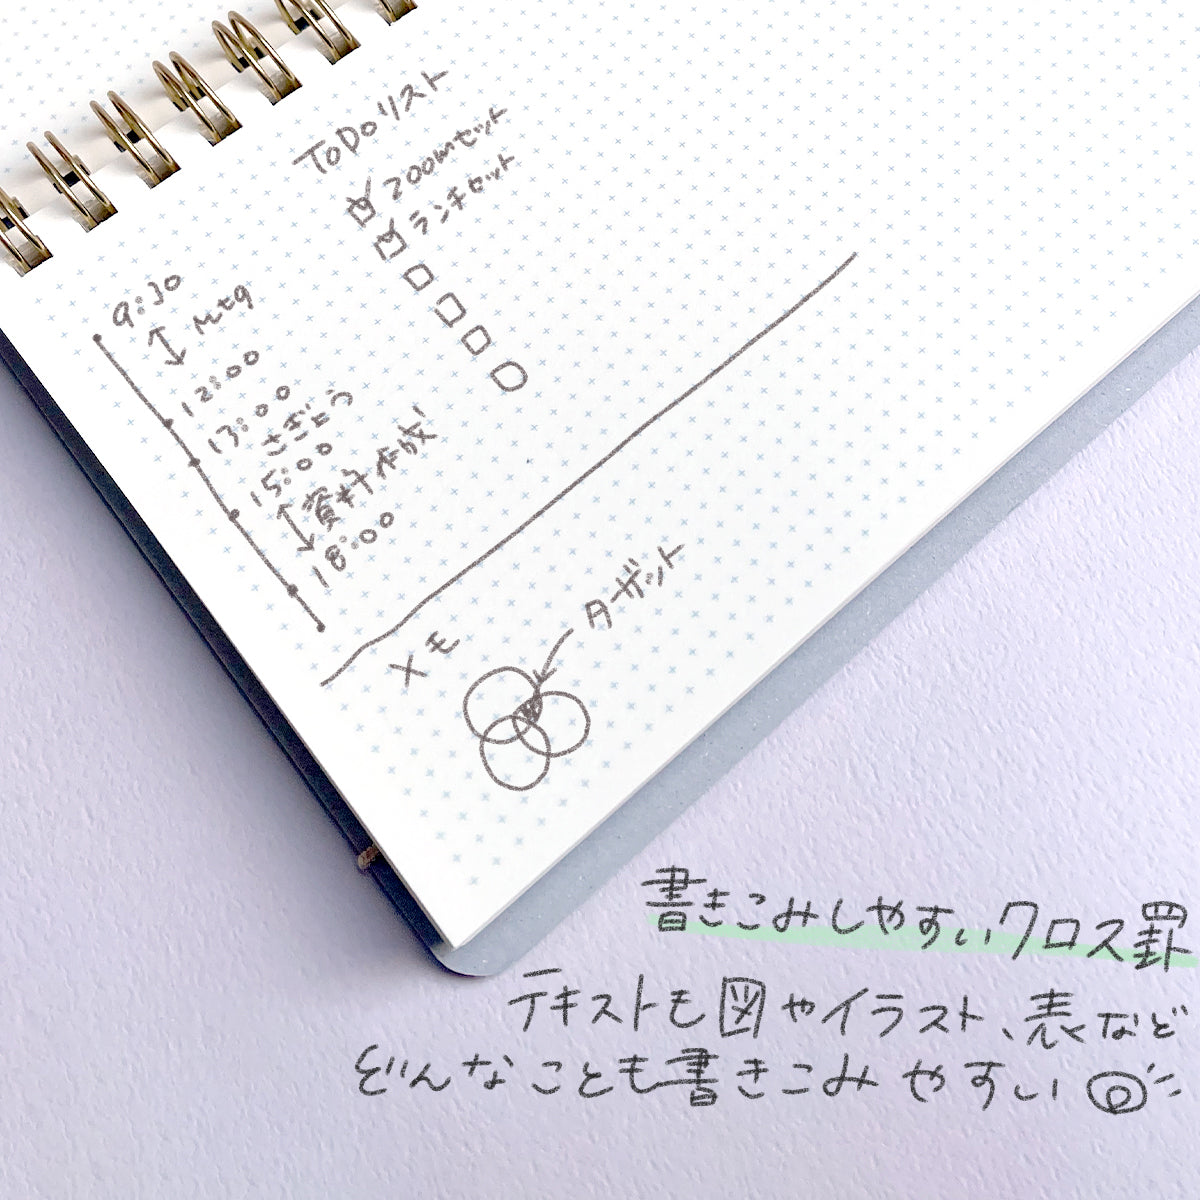 ToDoリスト
zoomセット
ランチセット
9:30
Mtg
12:00
13:00
さぎょう
15:00
資料作成
18:00
メモ
ターゲット
書きこみしやすいクロス罫
テキストも図やイラスト、表など
どんなことも書きこみやすい